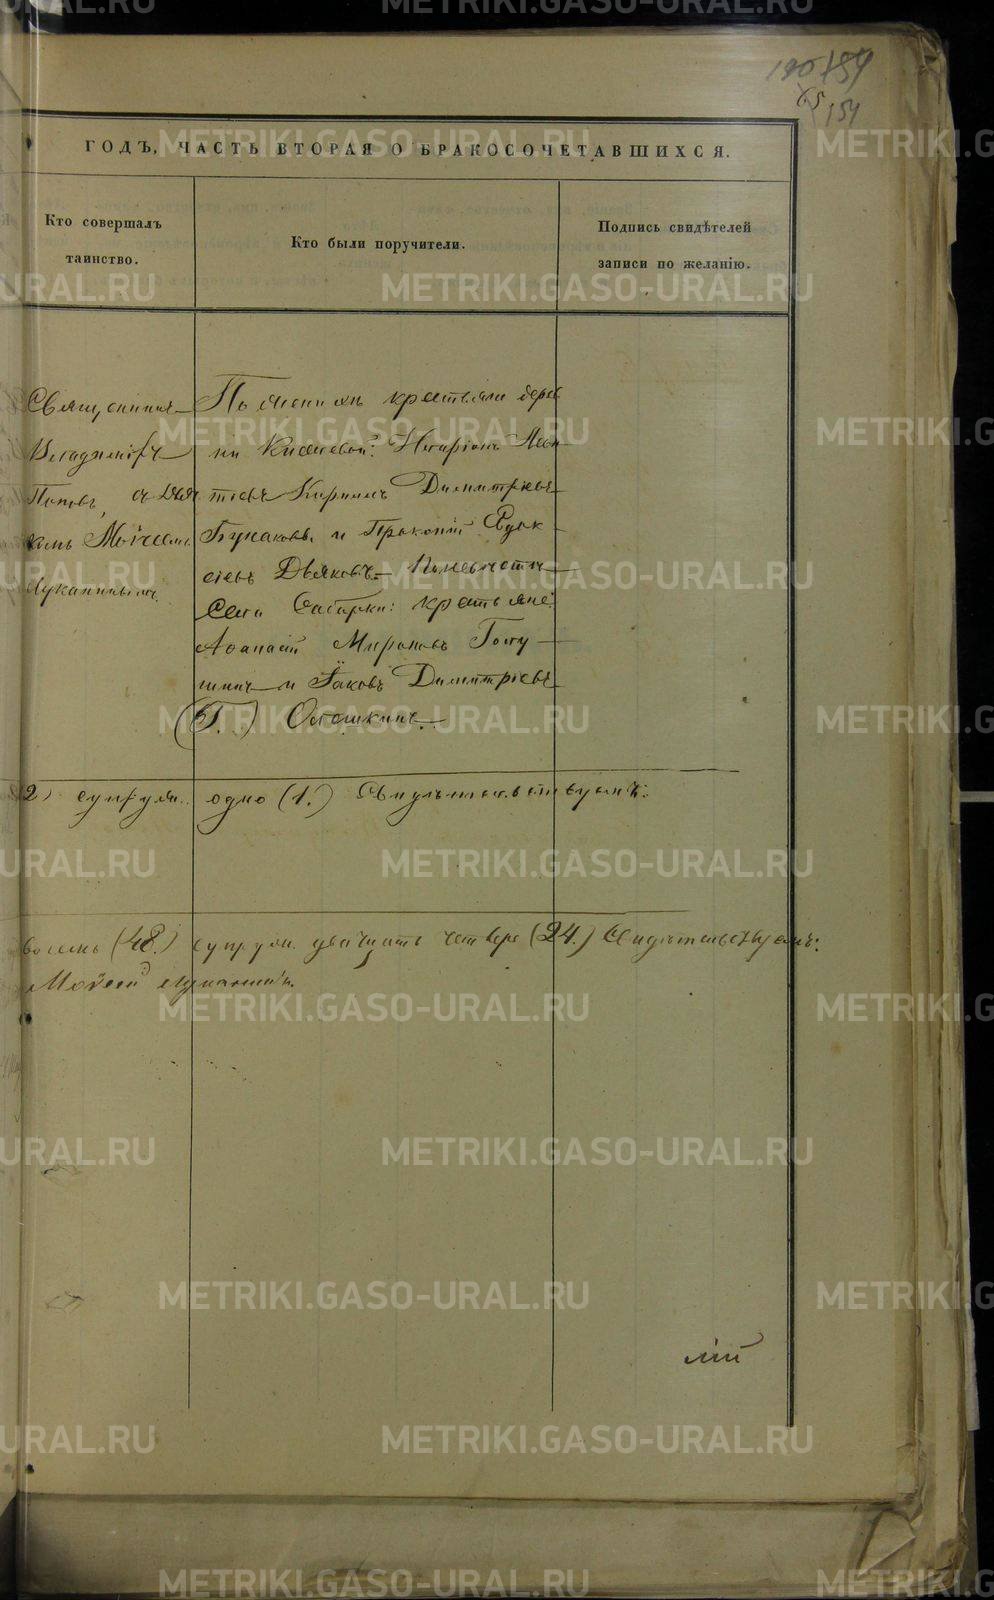 190 154
65 154
ГОДЪ, ЧАСТЬ ВТОРАЯ О БРАКОСОЧЕТАВШИХСЯ.
Кто совершалъ таинство.
Кто были поручители.
Подпись свидѣтелей записи по желанію.
Священникъ
Владиміръ
Поповъ, съ Дьяч
комъ Моѵсеемъ
Лукашинымъ.
По женихѣ крестьяне дерев
ни Киселевой: Иларіонъ Леон
тіевъ Кирилъ Димитріевъ
Бунаковъ и Прокопій Евдок
Дьяковъ. По невѣстѣ
Села Сабарки: крестьяне:
Аѳанасій Мироновъ
и Іаковъ Димитріевъ
(Г.)
2) супруж. одно (1.) Свидѣтельствуемъ:
восемь (48.) супруж. двадцать четыре (24.) Свидѣтельствуемъ:
Моѵсей
METRIKI.GASO-URAL.RU